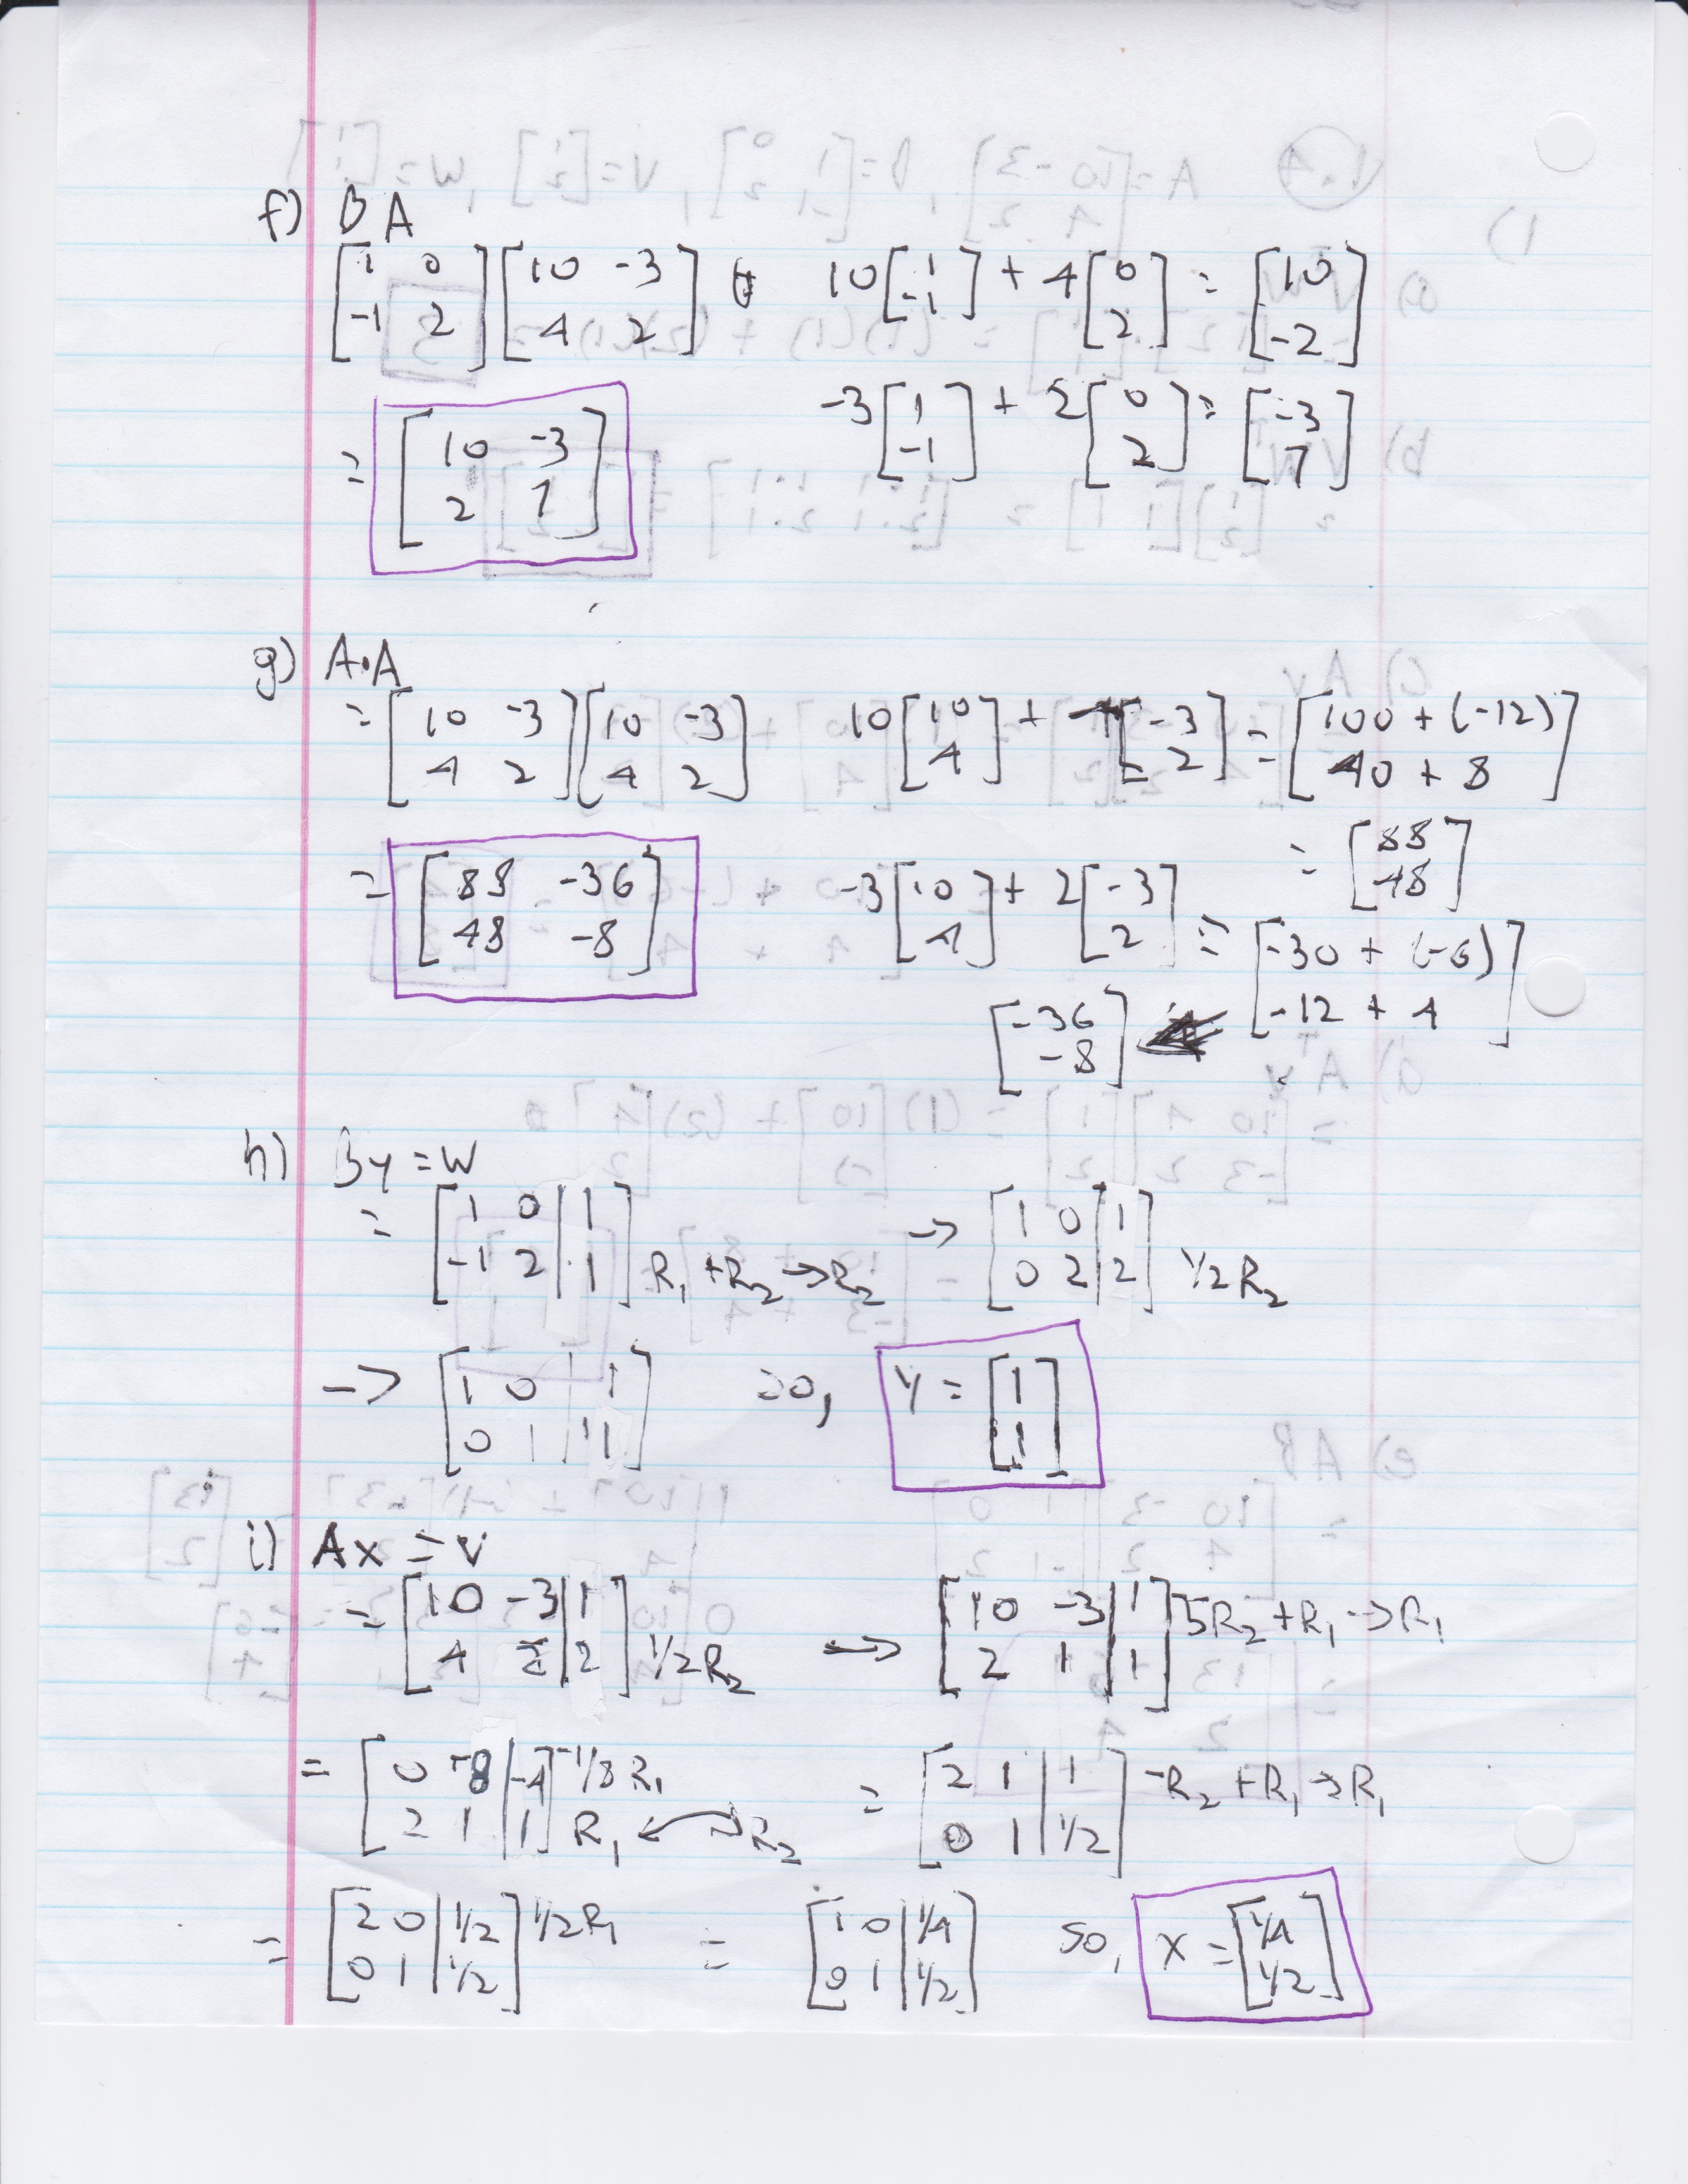 f) B A
[1 0; -1 2] [10 -3; 4 2] 10[1; -1] + 4[0; 2] = [10; -2]
= [10 -3; 2 7] -3[1; -1] + 2[0; 2] = [-3; 7]
g) A·A
= [10 -3; 4 2] [10 -3; 4 2] 10[10; 4] + 4[-3; 2] = [100 + (-12); 40 + 8]
= [88; 48]
= [88 -36; 48 -8] -3[10; 4] + 2[-3; 2] = [-30 + (-6); -12 + 4]
[-36; -8] ←
h) By = w
= [1 0 | 1; -1 2 | 1] R₁ + R₂ → R₂ → [1 0 | 1; 0 2 | 2] 1/2 R₂
→ [1 0 | 1; 0 1 | 1] so, y = [1; 1]
i) Ax = v
= [10 -3 | 1; 4 2 | 2] 1/2 R₂ → [10 -3 | 1; 2 1 | 1] 5R₂ + R₁ → R₁
= [0 -8 | -4; 2 1 | 1] -1/8 R₁ R₁ ↔ R₂ = [2 1 | 1; 0 1 | 1/2] -R₂ + R₁ → R₁
= [2 0 | 1/2; 0 1 | 1/2] 1/2 R₁ = [1 0 | 1/4; 0 1 | 1/2] so, x = [1/4; 1/2]